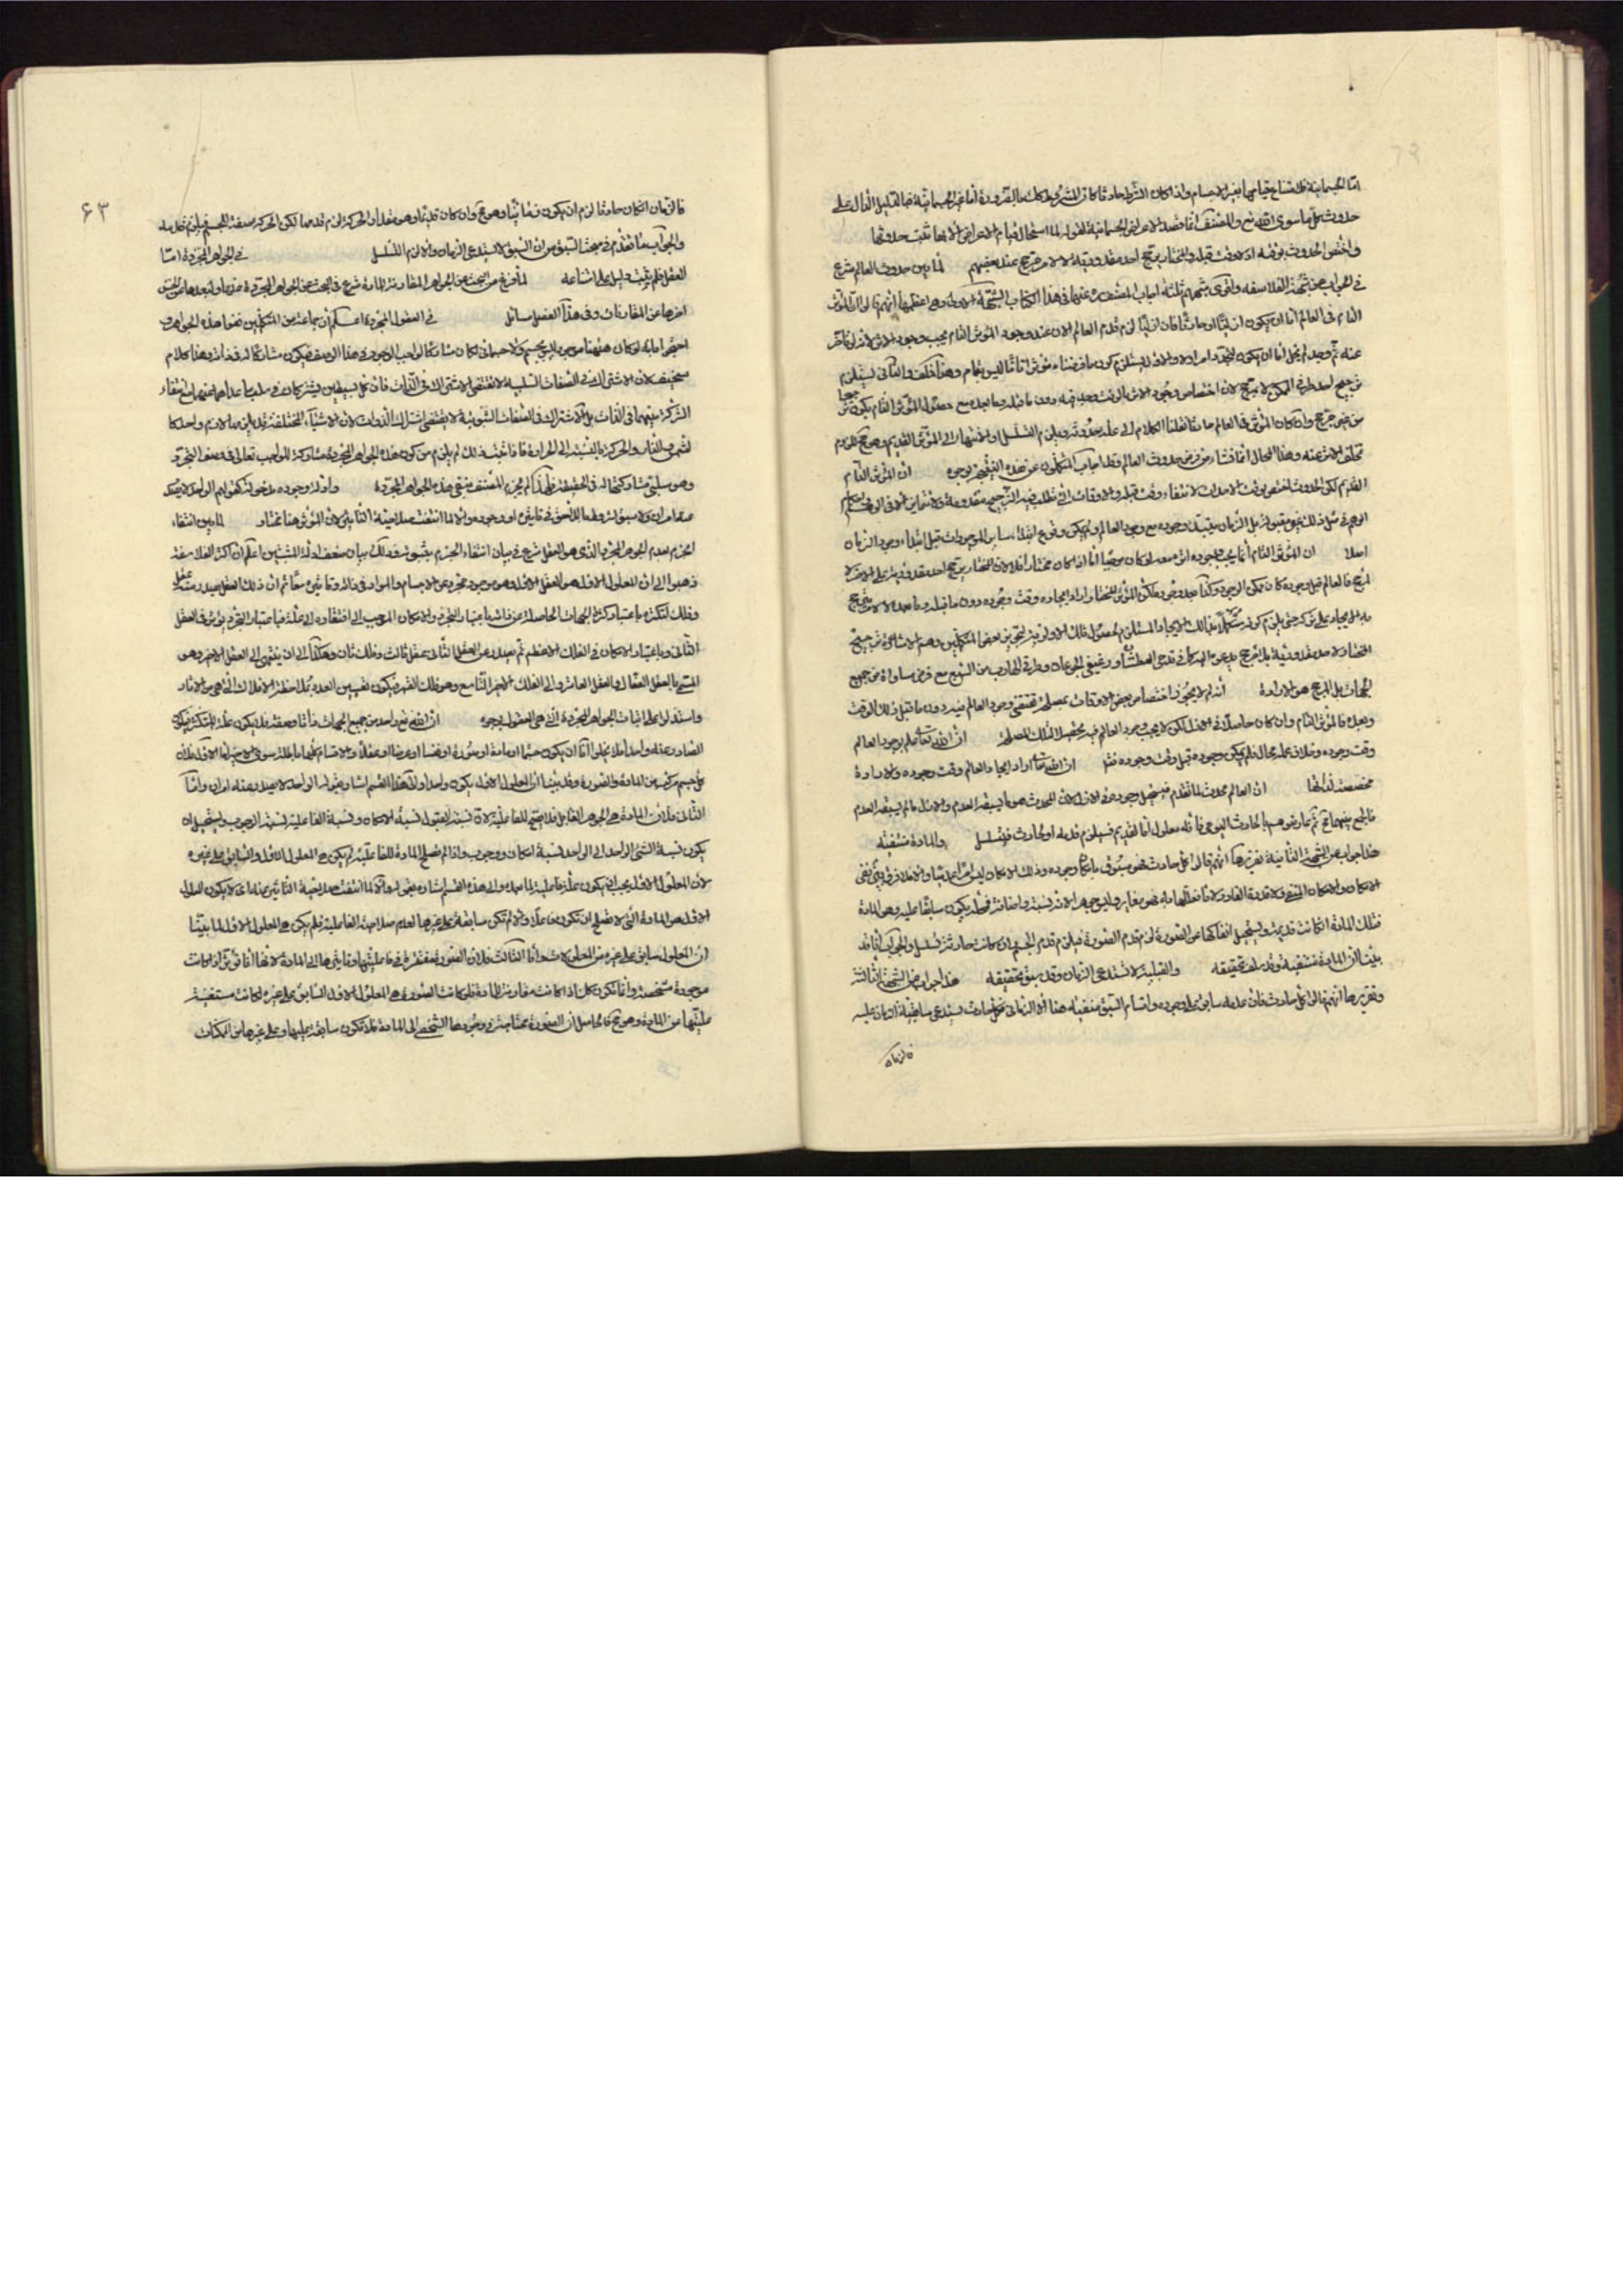 اما الجسمانية فلامتناع قيامها بغير الاجسام واذا كان الشرط حادثا كان المشروط كذلك بالضرورة اما غير الجسمانية فبالدليل الدال على
حدوث كل ما سوى الله تع والمصنف انما قصد الاعراض الجسمانية لقوله لما استحال قيام الاعراض الا بها ثبت حدوثها
واختص الحدوث بوقته اذ لا وقت قبله والمختار يرجح احد مقدوريه لا لامر مرجح عند بعضهم لما بين حدوث العالم شرع
في الجواب عن شبه الفلاسفه واقوى شبههم ثلثة اجاب المصنف ره عنها في هذا الكتاب الشبهة الاولى وهي اعظمها انهم قالوا المؤثر
التام في العالم اما ان يكون ازليا او حادثا فان كان ازليا لزم قدم العالم لان عند وجود المؤثر التام يجب وجود الاثر لانه لو تاخر
عنه ثم وجد لم يخل اما ان يكون لتجدد امر اولا والاول يستلزم كون ما فرضناه مؤثرا تاما ليس بتام وهذا خلف والثاني يستلزم
ترجيح احد طرفي الممكن لا لمرجح لان اختصاص وجود الاثر بالوقت وجد فيه دون ما قبله وما بعده مع حصول المؤثر التام يكون ترجيحا
من غير مرجح وان كان المؤثر في العالم حادثا نقلنا الكلام الى علة حدوثه ويلزم التسلسل او الانتهاء الى المؤثر القديم وهو محال للزوم
تخلف الاثر عنه وهذا المحال انما نشاء من فرض حدوث العالم وقد اجاب المتكلمون عن هذه الشبهة بوجوه ان المؤثر التام
القديم لكن الحدوث اختص بوقت الاحداث لانتفاء وقت قبله والاوقات التي تطلب فيها الترجيح معدومة ولا تمايز الا في الوهم
الوهم في مثل ذلك غير مقبول بل الزمان يبتدئ وجوده مع وجود العالم ولم يمكن وقوع ابتداء ساير الموجودات قبل ابتداء وجود الزمان
اصلا ان المؤثر التام انما يجب وجود اثره معه لو كان موجبا اما اذا كان مختارا فلا لان المختار يرجح احد مقدوريه على الاخر لا
لمرجح فالعالم قبل وجوده كان ممكن الوجود وكذا بعد وجوده لكن المؤثر المختار اراد ايجاده وقت وجوده دون ما قبله وما بعده لا لامر
الجهات بل المرجح هو الارادة انه لم لا يجوز اختصاص بعض الاوقات بمصلحة تقتضي وجود العالم فيه دون ما قبل ذلك الوقت
وبعده فالمؤثر التام وان كان حاصلا في الازل لكن لا يجب وجود العالم فيه تحصيلا لتلك المصلحة ان الله تعالى علم بوجود العالم
وقت وجوده وخلاف علمه محال فلم يمكن وجوده قبل وقت وجوده ان الله تعالى اراد ايجاد العالم وقت وجوده والارادة
مخصصة لذاتها ان العالم محدث لما تقدم فيستحيل وجوده في الازل لان المحدث هو ما يسبقه العدم والازل ما لم يسبقه العدم
فالجمع بينهما محال ثم عارضوهم بالحادث اليومي فانه معلول اما لقديم فيلزم قدمه او لحادث فيتسلسل والمادة منتفية
هذا جواب عن الشبهة الثانية تقريرها انهم قالوا كل حادث فهو مسبوق بامكان وجوده وذلك الامكان ليس امرا عدميا والا فلا فرق بين نفي
الامكان والامكان المنفي ولا قدرة القادر لانا نعللها به فهو مغاير وليس جوهرا لانه نسبة واضافة فمحله يكون سابقا عليه وهو المادة
فتلك المادة ان كانت قديمة ويستحيل انفكاكها عن الصورة لزم قدم الصورة فيلزم قدم الجسم وان كانت حادثة تسلسل والجواب انا قد
بينا ان المادة منتفية وقد سلف تحقيقه والقبلية لا تستدعي الزمان وقد سبق تحقيقه هذا جواب عن الشبهة الثالثة
وتقريرها انهم قالوا كل حادث فان عدمه سابق على وجوده واقسام السبق منفية هنا الا الزماني فكل حادث يستدعي سابقية الزمان عليه
فالزمان
۶۳
فالزمان ان كان حادثا لزم ان يكون زمانيا وهو محال وان كان قديما وهو مقدار الحركة لزم قدمها لكن الحركة صفة للجسم فيلزم قدمه
والجواب ما تقدم في مبحث السبق من ان السبق لا يستدعي الزمان والا لزم التسلسل في الجواهر المجردة اما
العقل فلم يثبت دليل على امتناعه لما فرغ من البحث عن الجواهر المقارنة للمادة شرع في البحث عن الجواهر المجردة عنها
اخرها عن المقارنات وفي هذا الفصل مسائل في العقول المجردة اعلم ان جماعة من المتكلمين نفوا هذه الجواهر و
احتجوا بانه لو كان هيهنا موجود ليس بجسم ولا جسماني لكان مشاركا لواجب الوجود في هذا الوصف فيكون مشاركا له في ذاته وهذا كلام
سخيف لان الاشتراك في الصفات السلبية لا يقتضي الاشتراك في الذات فان كل بسيطين يشتركان في سلب ما عداهما عنهما مع انتفاء
الشركة بينهما في الذات بل الاشتراك في الصفات الثبوتية لا يقتضي اشتراك الذوات لان الاشياء المختلفة قد يلزمها لازم واحد كا
لشمس والنار والحركة بالنسبة الى الحرارة فاذا ثبت ذلك لم يلزم من كون هذه الجواهر المجردة مشاركة للواجب تعالى في وصف التجرد
وهو سلبي مشاركتها له في الحقيقة فلهذا لم يجزم المصنف بنفي هذه الجواهر المجردة وادلة وجوده مدخولة كقولهم الواحد لا يصدر
عنه امران ولا سبق لمشروط باللاحق في تاثيره او وجوده والا لما انتفت صلاحية التاثير لان المؤثر هنا مختار لما بين انتفاء
الجزم بعدم الجوهر المجرد الذي هو العقل شرع في بيان انتفاء الجزم بثبوته وذلك ببيان ضعف ادلة المثبتين اعلم ان اكثر الفلاسفة
ذهبوا الى ان المعلول الاول هو العقل الاول وهو موجود مجرد عن الاجسام والمواد في ذاته وتاثيره معا ثم ان ذلك العقل يصدر منه عقل
وفلك لتكثره باعتبار كثرة الجهات الحاصلة
الثاني وباعتبار الامكان في الفلك الاعظم ثم يصدر عن العقل الثاني عقل ثالث وفلك ثان وهكذا الى ان ينتهي الى العقل الاخير وهو
المسمى بالعقل الفعال
واستدلوا على اثبات الجواهر المجردة التي هي العقول بوجوه ان الله تع واحد من جميع الجهات ذاتا وصفة فلا يكون علة للمتكثر فيكون
الصادر عنه واحدا فلا يخلو اما ان يكون جسما او مادة او صورة او نفسا او عرضا او عقلا والاقسام كلها باطلة سوى الاخير اما الاول فلان
كل جسم مركب من المادة والصورة وقد بينا ان المعلول الاول يكون واحدا والى هذا القسم اشار بقوله الواحد لا يصدر عنه امران واما
الثاني فلان المادة هي الجوهر القابل فلا تصلح للفاعلية لان نسبة القبول نسبة الامكان ونسبة الفاعلية نسبة الوجوب ويستحيل ان
يكون نسبة الشئ الواحد الى الواحد نسبة امكان ووجوب واذا لم تصلح المادة للفاعلية لم يكن هي المعلول الاول السابق على غيره
لان المعلول الاول يجب ان يكون علة فاعلية لما بعده والى هذا القسم اشار بقوله والا لما انتفت صلاحية التاثير عنه
الاول هو المادة التي لا تصلح ان تكون فاعلا والا لم تكن سابقة على غيرها لعدم صلاحية الفاعلية فلم يكن هي المعلول الاول لما بينا
ان المعلول سابق على غيره من المعلولات واما الثالث فلان الصورة مفتقرة في فاعليتها وتاثيرها الى المادة لانها انما تؤثر اذا كانت
موجودة مشخصة وانما تكون كذلك اذا كانت مقارنة للمادة فلو كانت الصورة هي المعلول الاول السابق على غيره لكانت مستغنية
عليتها عن المادة وهو محال فالحاصل ان الصورة محتاجة في وجودها الشخصي الى المادة فلا تكون سابقة عليها وعلى غيرها من الممكنات